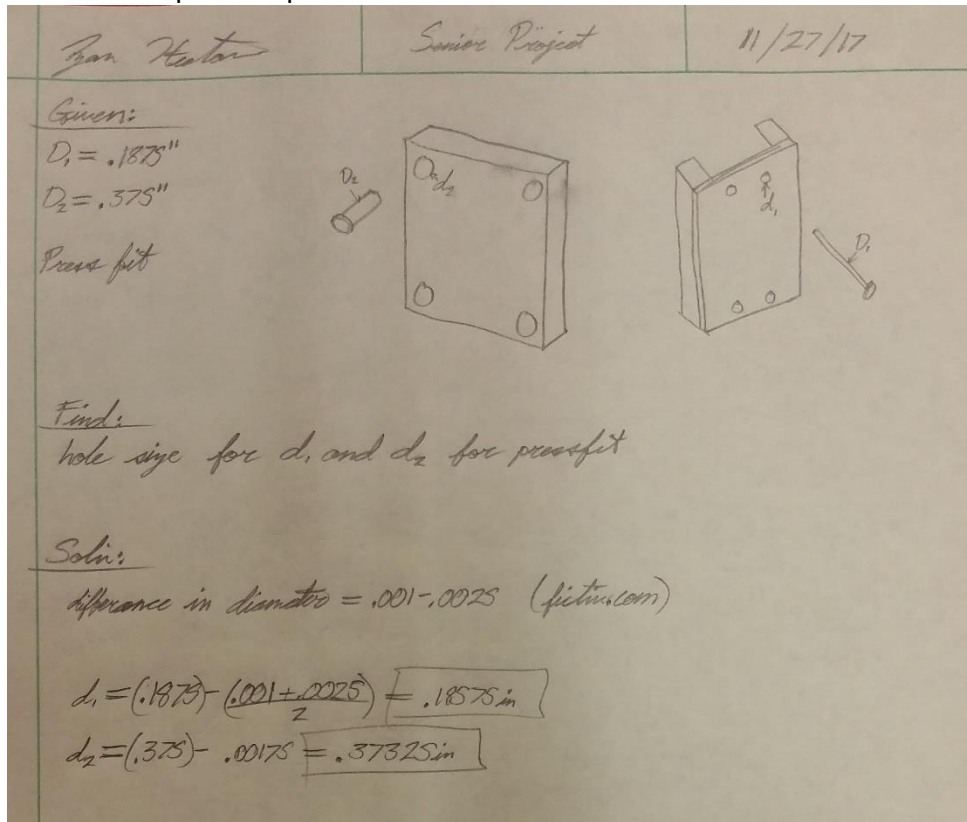 Senior Project
11/27/17
Given:
D₁ = .1875"
D₂ = .375"
Press fit
D₂
d₂
d₁
D₁
Find:
hole size for d₁ and d₂ for pressfit
Soln:
differance in diameter = .001-.0025 (fictiv.com)
d₁ = (.1875) - (.001+.0025)/2 = .18575in
d₂ = (.375) - .00175 = .37325in